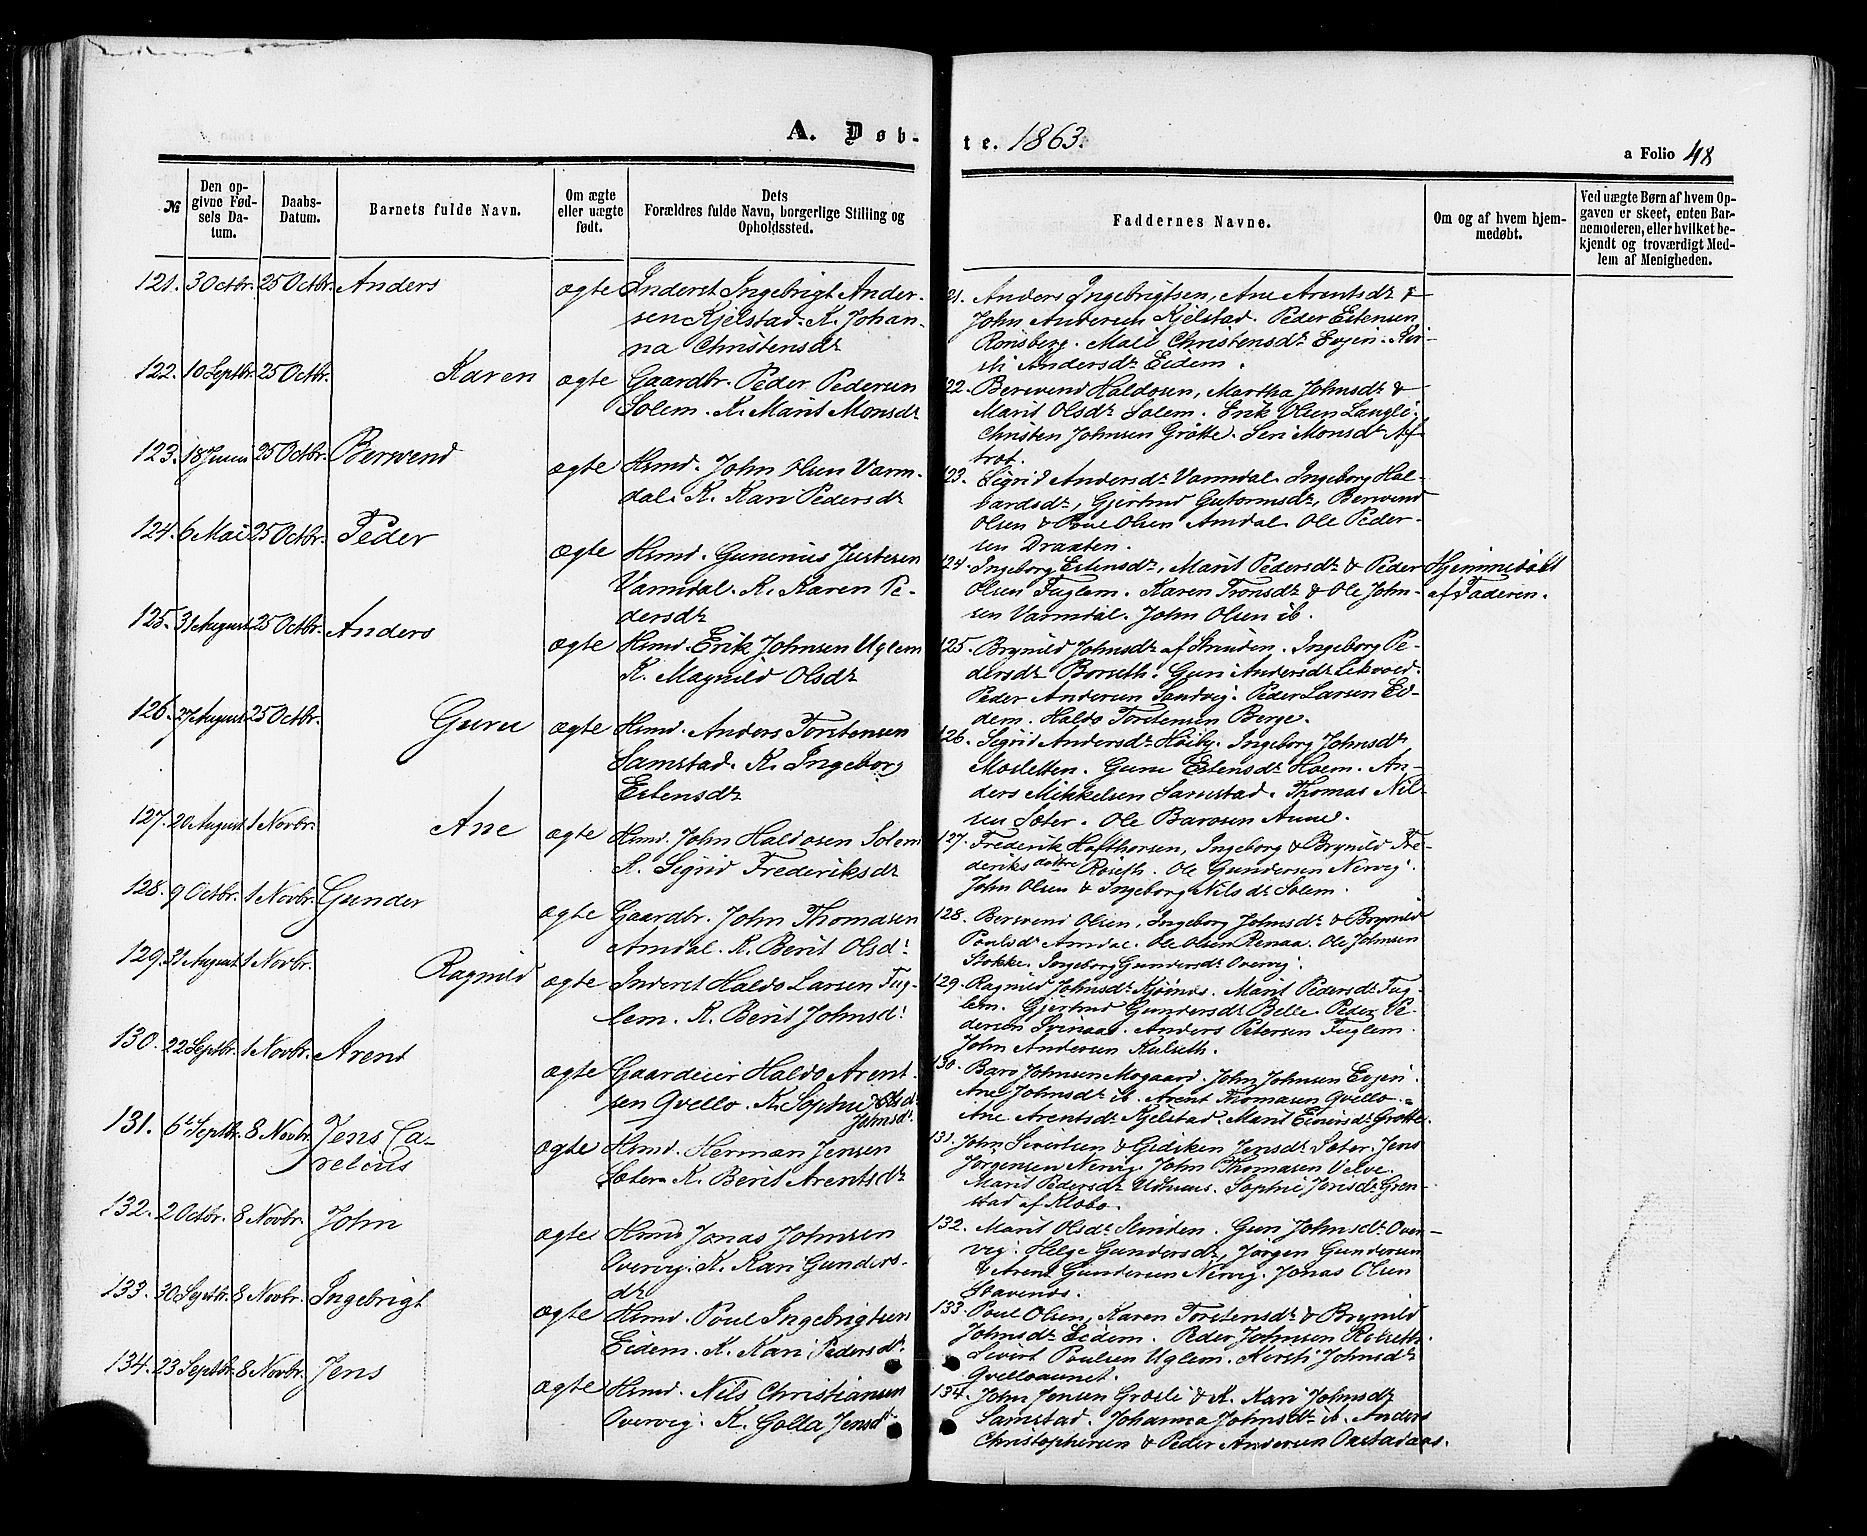 A. Døb-
te. 1863.
a Folio 48
№
Den op-
givne Fød-
sels Da-
tum.
Daabs-
Datum.
Barnets fulde Navn.
Om ægte
eller uægte
født.
Dets
Forældres fulde Navn, borgerlige Stilling og
Opholdssted.
Faddernes Navne.
Om og af hvem hjem-
medøbt.
Ved uægte Børn af hvem Op-
gaven er skeet, enten Bar-
nemoderen, eller hvilket be-
kjendt og troværdigt Med-
lem af Menigheden.
121. 3 Octbr. 25 Octbr. Anders ægte Inderst Ingebrigt Ander-
sen Kjelstad. K. Johan-
na Christensdr
121. Anders Ingebrigtsen, Ane Arentsdr &
John Andersen Kjelstad. Peder Estensen
Rønsberg. Mali Christensdr Evjen. Kir-
sti Andersdr Eidem.
122. 10 Septbr. 25 Octbr. Karen ægte Gaardbr. Peder Pedersen
Solem. K. Marit Monsdr
122. Bersvend Haldosen, Martha Johnsdr &
Marit Olsdr Solem. Erik Olsen Langli.
Christen Johnsen Grøtte. Seri Monsdr Af-
trøt.
123. 18 Juni 25 Octbr. Bersvend ægte Hsmd. John Olsen Varm-
dal. K. Kari Pedersdr
123. Sigrid Andersdr Varmdal. Ingeborg Hal-
vardsdr, Gjertrud Gutormsdr, Bersvend
Olsen & Poul Olsen Amdal. Ole Peder-
sen Draxten.
124. 6 Mai 25 Octbr. Peder ægte Hsmd. Gunerius Justesen
Varmdal. K. Karen Pe-
dersdr
124. Ingeborg Estensdr, Marit Pedersdr & Peder
Olsen Fuglem. Karen Tronsdr & Ole John-
sen Varmdal. John Olsen ib.
Hjemmedøbt
af Faderen.
125. 31 August 25 Octbr. Anders ægte Hsmd. Erik Johnsen Uglem
K. Magnild Olsdr
125. Brynild Johnsdr af Strinden. Ingeborg Pe-
dersdr Borseth. Guri Andersdr Lekvold.
Peder Andersen Sandvig. Peder Larsen Ei-
dem. Haldo Torstensen Berge.
126. 27 August 25 Octbr. Guru ægte Hsmd. Anders Torstensen
Samstad. K. Ingeborg
Estensdr
126. Sigrid Andersdr Høiby. Ingeborg Johnsdr
Mosletten. Gune Estensdr Hoem. An-
ders Mikkelsen Samstad. Thomas Nil-
sen Sæter. Ole Barosen Aune.
127. 20 August 1 Novbr. Ane ægte Hsmd. John Haldosen Solem
K. Sigrid Frederiksdr
127. Frederik Hafthorsen, Ingeborg & Brynild Fre-
deriksdøttre Røseth. Ole Gundersen Nervig.
John Olsen & Ingeborg Nilsdr Solem.
128. 9 Octbr. 1 Novbr. Gunder ægte Gaardbr. John Thomasen
Amdal. K. Berit Olsdr
128. Bersvend Olsen, Ingeborg Johnsdr & Brynild
Poulsdr Amdal. Ole Olsen Renaa. Ole Johnsen
Stokke. Ingeborg Gundersdr Overvig.
129. 21 August 1 Novbr. Ragnild ægte Inderst Haldo Larsen Fug-
lem. K. Berit Johnsdr
129. Ragnild Johnsdr Kjøsnes. Marit Pedersdr Fug-
lem. Gjertrud Gundersdr Belle. Peder Pe-
dersen Svenaas. Anders Petersen Fuglem.
John Andersen Kulseth.
130. 22 Septbr. 1 Novbr. Arent ægte Gaardeier Haldo Arent-
sen Qvello. K. Sophie Olsdr
Johnsdr.
130. Baro Johnsen Mogaard. John Johnsen Evjen.
Ane Johnsdr ib. Arent Thomasen Qvello.
Ane Arentsdr Kjelstad. Marit Einersdr Grøtte.
131. 6te Septbr. 8 Novbr. Jens Ca-
relius
ægte Hsmd. Herman Jensen
Sæter. K. Berit Arentsdr
131. John Sivertsen & Gidsken Jensdr Sæter. Jens
Jørgensen Nervig. John Thomasen Velve.
Marit Pedersdr Udhuus. Sophie Jensdr Gren-
stad af Klæbo.
132. 2 Octbr. 8 Novbr. John ægte Hsmd Jonas Johnsen
Overvig. K. Kari Gunders-
dr
132. Marit Olsdr Strinden. Guri Johnsdr Over-
vig. Helge Gundersdr, Jørgen Gundersen
& Arent Gundersen Nervig. Jonas Olsen
Stavenes.
133. 30 Septbr. 8 Novbr. Ingebrigt ægte Hsmd. Poul Ingebrigtsen
Eidem. K. Kari Pedersdr.
133. Poul Olsen, Karen Torstensdr & Brynild
Johnsdr Eidem. Peder Johnsen Rotseth.
Sivert Poulsen Uglem. Kersti Johnsdr
Qvelloaunet.
134. 23 Septbr. 8 Novbr. Jens ægte Hsmd. Nils Christiansen
Overvig. K. Golla Jensdr
134. John Jensen Grøsli & K. Kari Johnsdr
Samstad. Johanna Johnsdr ib. Anders
Christophersen & Peder Andersen Oxstadaas.